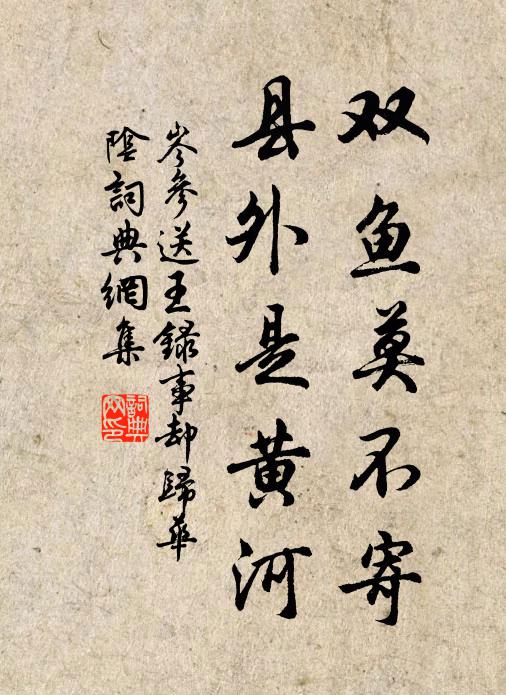 双鱼莫不寄
县外是黄河
岑參送王録事却歸華
陰詞典網集
詞典
网印